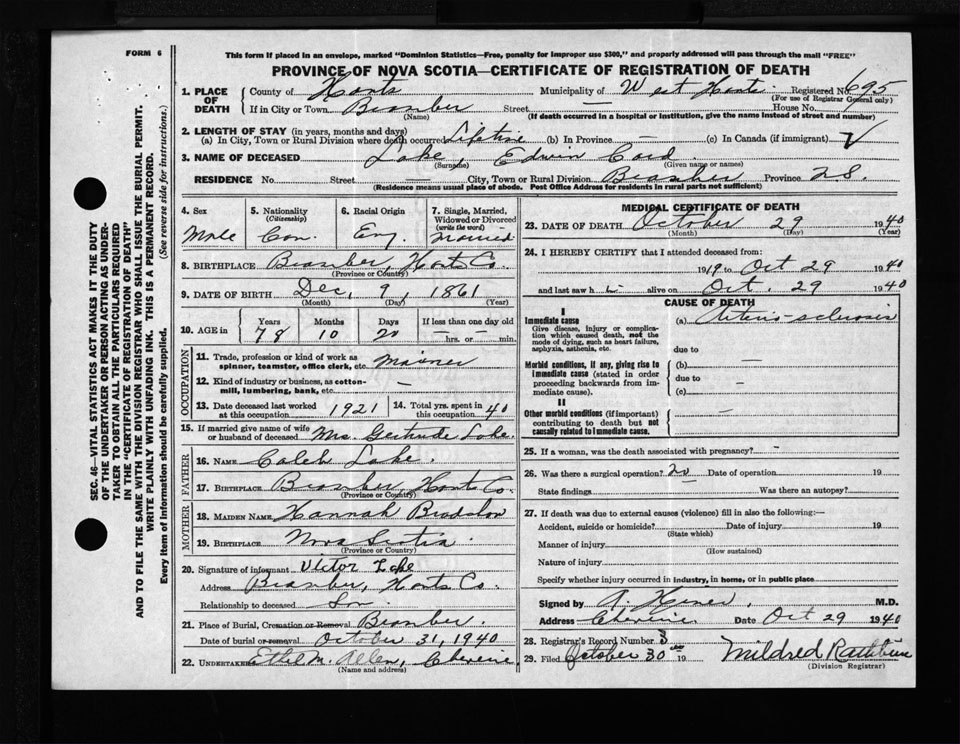 FORM 6
This form if placed in an envelope, marked "Dominion Statistics—Free, penalty for improper use $300," and properly addressed will pass through the mail "FREE"
PROVINCE OF NOVA SCOTIA—CERTIFICATE OF REGISTRATION OF DEATH
SEC. 46—VITAL STATISTICS ACT MAKES IT THE DUTY
OF THE UNDERTAKER OR PERSON ACTING AS UNDER-
TAKER TO OBTAIN ALL THE PARTICULARS REQUIRED
IN THE "CERTIFICATE OF REGISTRATION OF DEATH"
AND TO FILE THE SAME WITH THE DIVISION REGISTRAR WHO SHALL ISSUE THE BURIAL PERMIT.
WRITE PLAINLY WITH UNFADING INK. THIS IS A PERMANENT RECORD.
Every item of information should be carefully supplied. (See reverse side for instructions.)
1. PLACE OF DEATH
County of Hants Municipality of West Hants Registered No. 695
(For use of Registrar General only)
If in City or Town Bramber Street — House No.
(Name) (If death occurred in a hospital or institution, give the name instead of street and number)
2. LENGTH OF STAY (in years, months and days)
(a) In City, Town or Rural Division where death occurred Lifetime (b) In Province — (c) In Canada (if immigrant)
3. NAME OF DECEASED Lake, Edwin
(Surname) (Given name or names)
RESIDENCE No. Street — City, Town or Rural Division Bramber Province N.S.
(Residence means usual place of abode. Post Office Address for residents in rural parts not sufficient)
4. Sex Male
5. Nationality (Citizenship) Can.
6. Racial Origin Eng.
7. Single, Married, Widowed or Divorced (write the word) Married
8. BIRTHPLACE Bramber, Hants Co.
(Province or Country)
9. DATE OF BIRTH Dec. 9, 1861
(Month) (Day) (Year)
10. AGE in Years 78 Months 10 Days 20 If less than one day old — hrs. or — min.
OCCUPATION
11. Trade, profession or kind of work as
spinner, teamster, office clerk, etc. Mariner
12. Kind of industry or business, as cotton-
mill, lumbering, bank, etc. —
13. Date deceased last worked at this occupation 1921
14. Total yrs. spent in this occupation 40
15. If married give name of wife or husband of deceased Mrs. Gertrude Lake.
FATHER
16. NAME Caleb Lake.
17. BIRTHPLACE Bramber, Hants Co.
(Province or Country)
MOTHER
18. MAIDEN NAME Hannah
19. BIRTHPLACE Nova Scotia
(Province or Country)
20. Signature of informant Victor Lake
Address Bramber, Hants Co.
Relationship to deceased Son
21. Place of Burial, Cremation or Removal Bramber.
Date of burial or removal October 31, 1940
22. UNDERTAKER Ethel M. Allen, Cheverie.
MEDICAL CERTIFICATE OF DEATH
23. DATE OF DEATH October 29 1940
(Month) (Day) (Year)
24. I HEREBY CERTIFY that I attended deceased from:
1919 to Oct 29 1940
and last saw him alive on Oct. 29 1940
CAUSE OF DEATH
I
Immediate cause
Give disease, injury or complica-
tion which caused death, not the
mode of dying, such as heart failure,
asphyxia, asthenia, etc.
(a) Arterio-sclerosis
due to
Morbid conditions, if any, giving rise to
immediate cause (stated in order
proceeding backwards from im-
mediate cause).
(b) —
due to —
(c)
II
Other morbid conditions (if important)
contributing to death but not
causally related to immediate cause.
—
25. If a woman, was the death associated with pregnancy? —
26. Was there a surgical operation? No Date of operation 19
State findings — Was there an autopsy?
27. If death was due to external causes (violence) fill in also the following:—
Accident, suicide or homicide? Date of injury 19
(State which)
Manner of injury
(How sustained)
Nature of injury
Specify whether injury occurred in industry, in home, or in public place
Signed by M.D.
Address Cheverie Date Oct 29 1940
28. Registrar's Record Number 3
29. Filed October 30 19 Mildred
(Division Registrar)